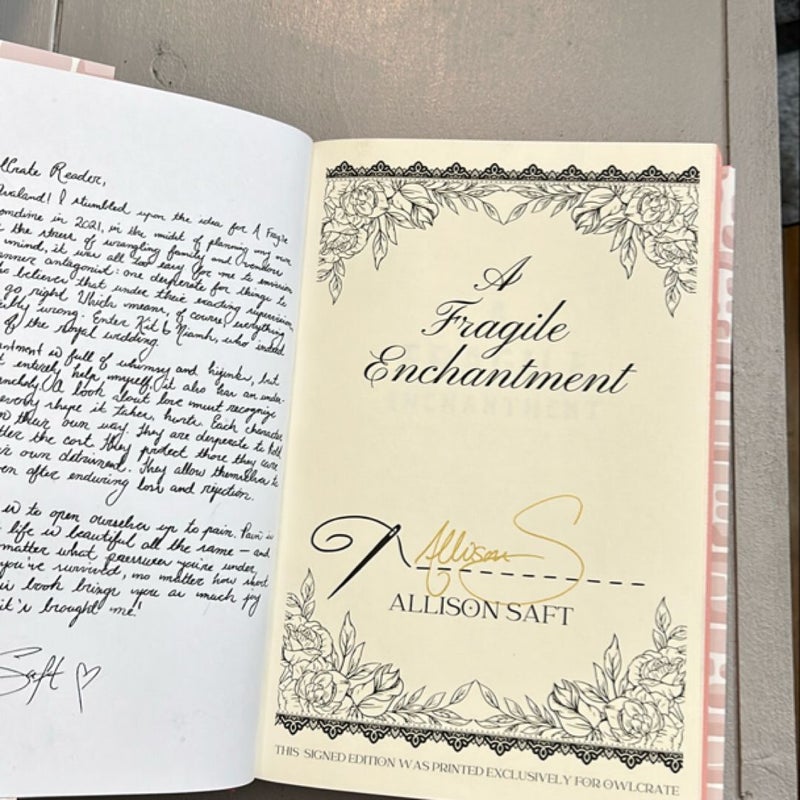 Crate Reader,
Avaland! I stumbled upon the idea for A Fragile
sometime in 2021, in the midst of planning my own
the stress of wrangling family and vendors
mind, it was all too easy for me to envision
antagonist: one desperate for things to
believes that under their exacting supervision,
go right. Which means, of course, everything
wrong. Enter Kit & Niamh, who indeed
of the royal wedding.
is full of whimsy and hijinks, but
entirely help myself, it also has an under-
A book about love must recognize
every shape it takes, hurts. Each character
their own way. They are desperate to hold
the cost. They protect those they care
own detriment. They allow themselves to
after enduring loss and rejection.
is to open ourselves up to pain. Pain is
life is beautiful all the same — and
matter what pressures you're under,
you've survived, no matter how short
book brings you as much joy
it's brought me!
Saft
A
Fragile
Enchantment
Allison S
ALLISON SAFT
THIS SIGNED EDITION WAS PRINTED EXCLUSIVELY FOR OWLCRATE